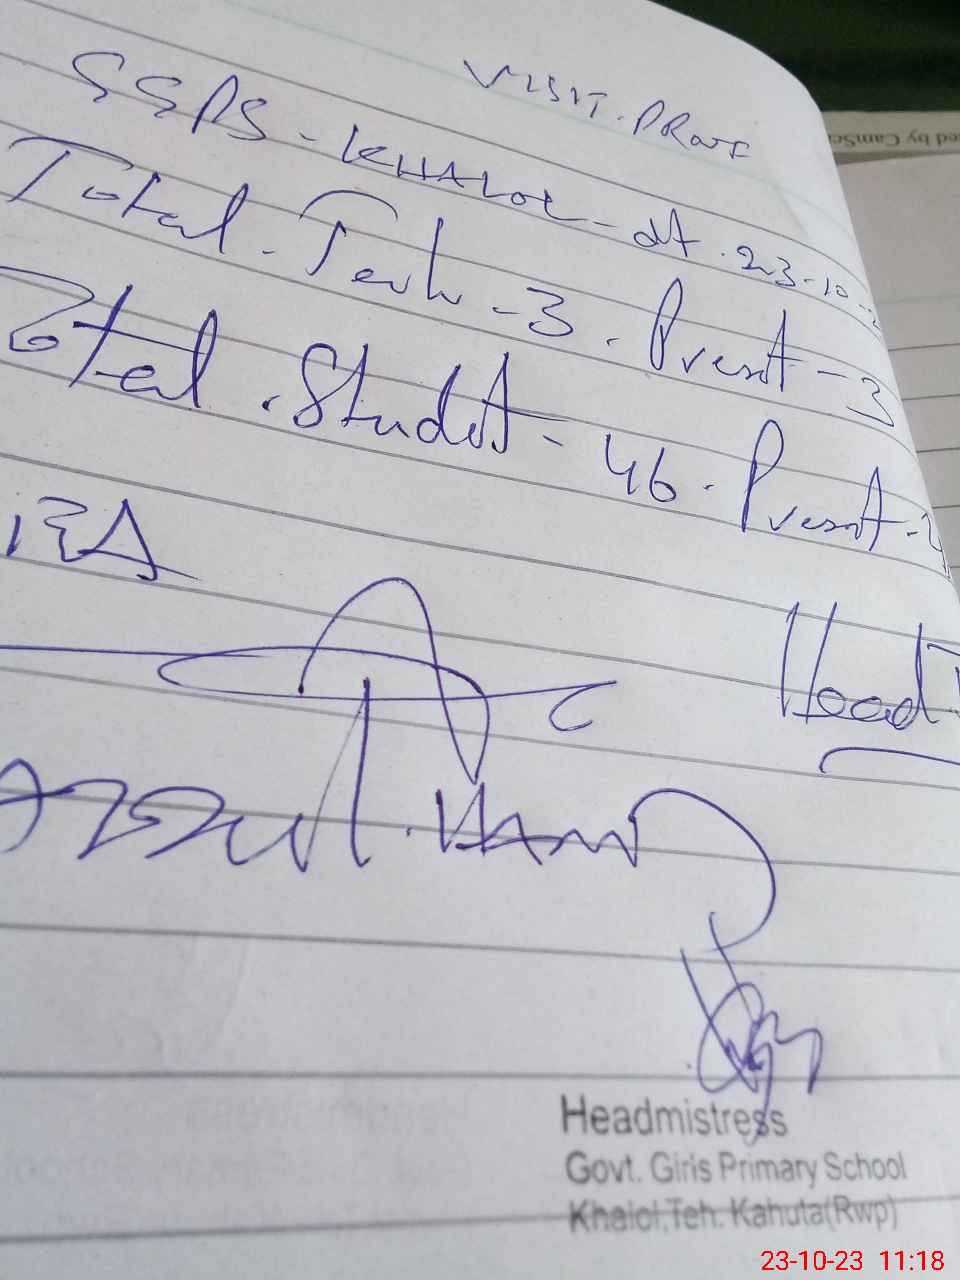 VISIT. PROOF
GGPS - KHALOL - dt. 23-10-2
Total. Teach - 3. Present - 3
Total. Student - 46. Present - 
Head
Headmistress
Govt. Girls Primary School
Khalol, Teh. Kahuta(Rwp)
ed by CamSc
23-10-23 11:18